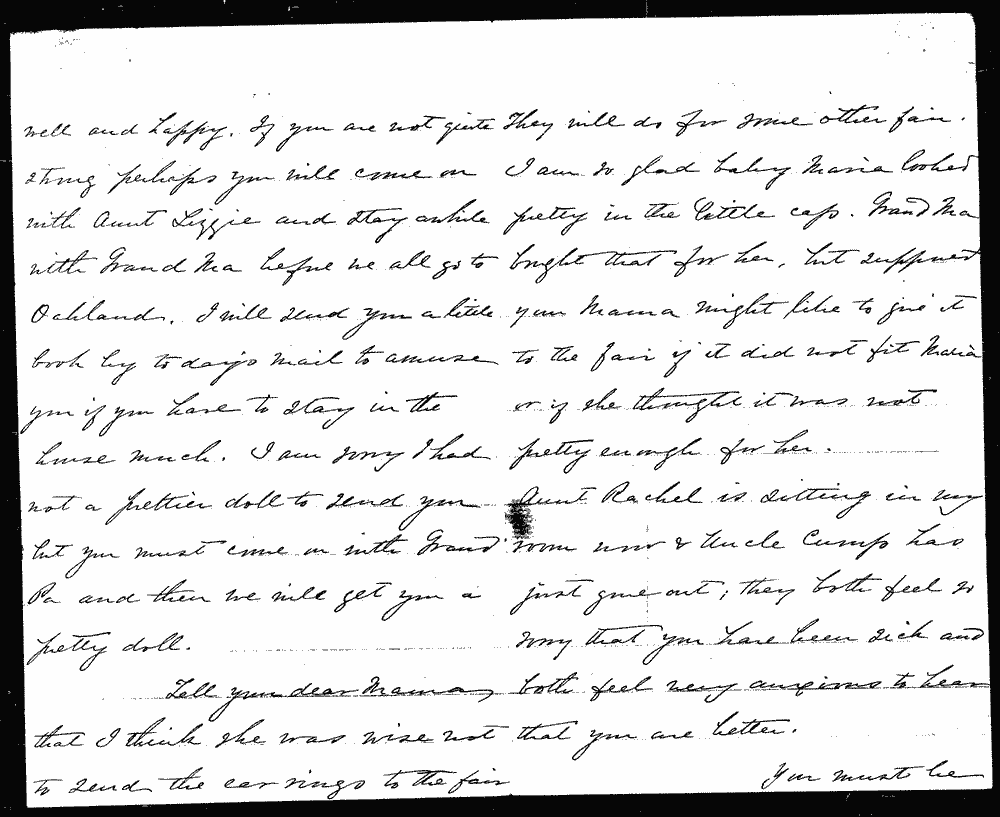 well and happy. If you are not quite
strong perhaps you will come on
with Aunt Lizzie and stay awhile
with Grand Ma before we all go to
Oakland. I will send you a little
book by to day's mail to amuse
you if you have to stay in the
house much. I am sorry I had
not a prettier doll to send you
but you must come on with Grand
Pa and then we will get you a
pretty doll.
Tell your dear Mama,
that I think she was wise not
to send the ear rings to the fair
They will do for some other fair.
I am so glad baby Maria looked
pretty in the little cap. Grand Ma
bought that for her, but supposed
your Mama might like to give it
to the fair if it did not fit Maria
or if she thought it was not
pretty enough for her.
Aunt Rachel is sitting in my
room now & Uncle Cump has
just gone out; they both feel so
sorry that you have been sick and
both feel very anxious to hear
that you are better.
You must be